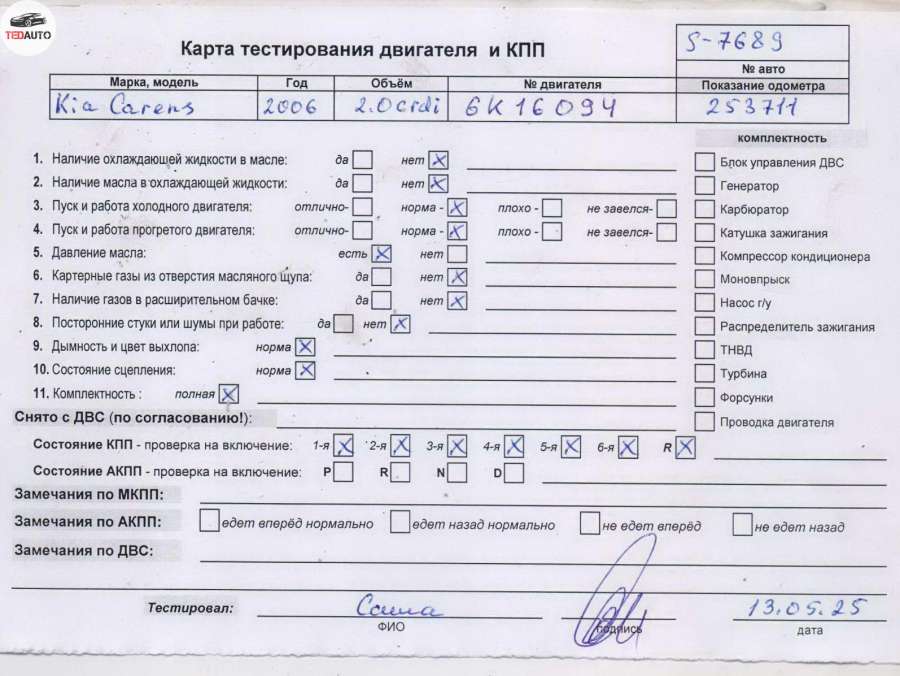 TEDAUTO
Карта тестирования двигателя и КПП
S-7689
№ авто
Марка, модель Год Объём № двигателя Показание одометра
Kia Carens 2006 2.0crdi 6K16094 253711
комплектность
1. Наличие охлаждающей жидкости в масле: да нет X
Блок управления ДВС
2. Наличие масла в охлаждающей жидкости: да нет X
Генератор
3. Пуск и работа холодного двигателя: отлично- норма - X плохо - не завелся-
Карбюратор
4. Пуск и работа прогретого двигателя: отлично- норма - X плохо - не завелся-
Катушка зажигания
5. Давление масла: есть X нет
Компрессор кондиционера
6. Картерные газы из отверстия масляного щупа: да нет X
Моновпрыск
7. Наличие газов в расширительном бачке: да нет X
Насос г/у
8. Посторонние стуки или шумы при работе: да нет X
Распределитель зажигания
9. Дымность и цвет выхлопа: норма X
ТНВД
10. Состояние сцепления: норма X
Турбина
11. Комплектность : полная X
Форсунки
Снято с ДВС (по согласованию!):
Проводка двигателя
Состояние КПП - проверка на включение: 1-я X 2-я X 3-я X 4-я X 5-я X 6-я X R X
Состояние АКПП - проверка на включение: P R N D
Замечания по МКПП:
Замечания по АКПП: едет вперёд нормально едет назад нормально не едет вперёд не едет назад
Замечания по ДВС:
Тестировал: Саша 13.05.25
ФИО подпись дата